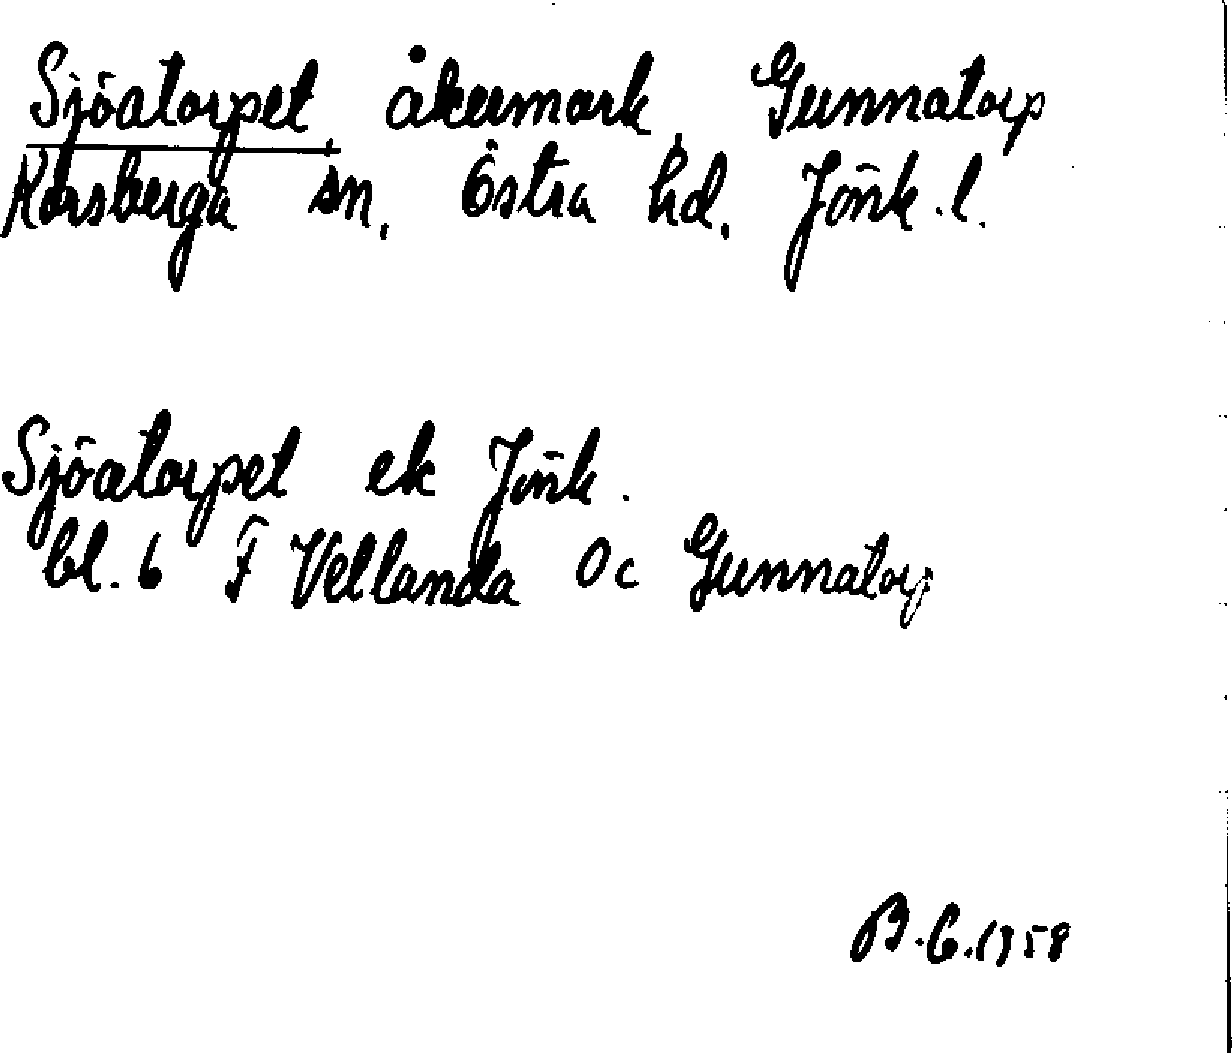 Sjöatorpet, åkermark, Gunnatorp
Korsberga sn, Östra hd, Jönk.l.
Sjöatorpet ek Jönk.
bl. 6 F Vetlanda Oc Gunnatorp
B.G.1958